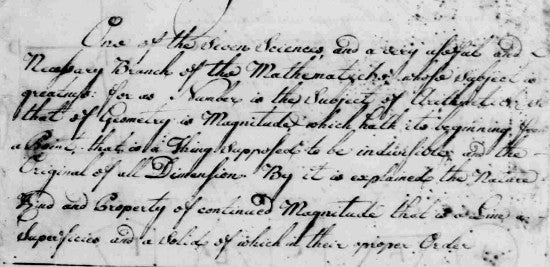 One of the Seven Sciences, and a very useful and
Necessary Branch of the Mathematicks, whose subject is
greatness: for as Number is the Subject of Arithmetic so
that of Geometry is Magnitude, which hath its beginning from
a Point, that is a Thing Supposed to be indivisible, and the
Original of all Dimension. By it is explained the Nature
End and Property of continued Magnitude that is a Line a
Superficies and a Solid of which in their proper Order